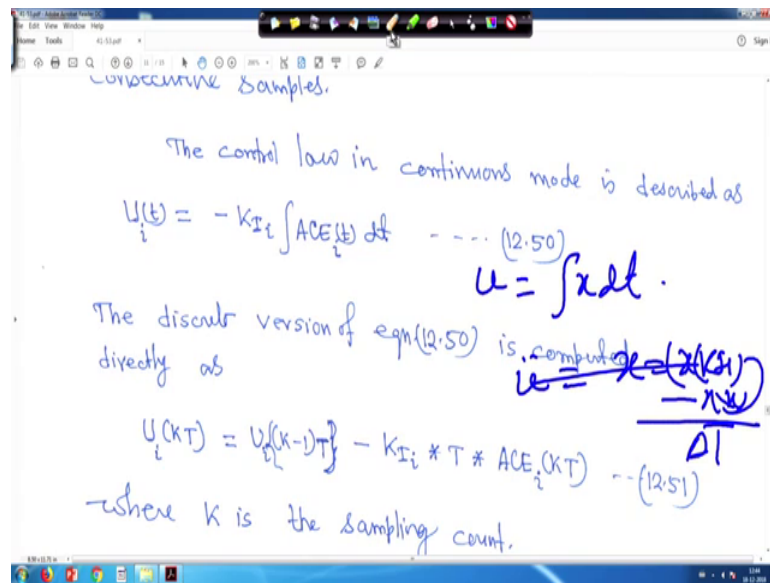 41-53.pdf - Adobe Acrobat Reader DC
File Edit View Window Help
Home Tools 41-53.pdf × Sign
11 / 15
Consecutive samples.
The control law in continuous mode is described as
U_i(t) = - K_Ii ∫ ACE_i(t) dt ---- (12.50)
u = ∫ x dt .
The discrete version of eqn(12.50) is computed
directly as
ΔT
U_i(KT) = U_i{(K-1)T} - K_Ii * T * ACE_i(KT) --(12.51)
where K is the sampling count.
8.50 x 11.71 in